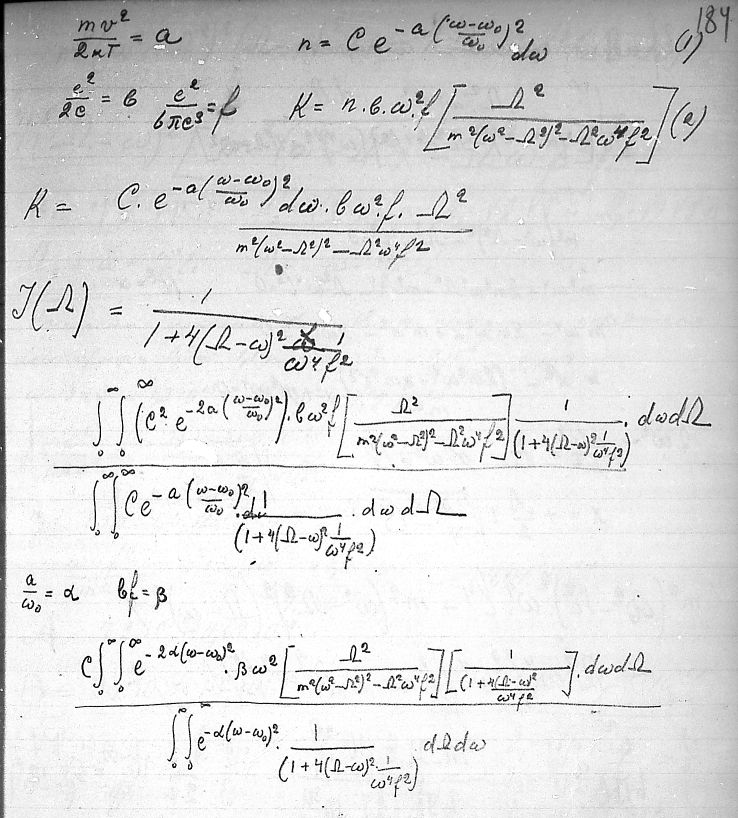 184
mv²/2кТ = a    n = C e^{-a((ω-ω₀)/ω₀)²} dω    (1)
e²/2c = b    e²/6πc³ = f    K = n.b.ω².f [Ω² / (m²(ω²-Ω²)² - Ω²ω⁴f²)] (2)
K = C · e^{-a((ω-ω₀)/ω₀)²} dω · bω²f · Ω² / (m²(ω²-Ω²)² - Ω²ω⁴f²)
J(Ω) = 1 / (1+4(Ω-ω)² 1/(ω⁴f²))
∫₀^∞ ∫₀^∞ (C² e^{-2a((ω-ω₀)/ω₀)²}) · bω²f [Ω² / (m²(ω²-Ω²)² - Ω²ω⁴f²)] 1/(1+4(Ω-ω)² 1/(ω⁴f²)) · dωdΩ
∫₀^∞ ∫₀^∞ C e^{-a((ω-ω₀)/ω₀)²} · 1/(1+4(Ω-ω)² 1/(ω⁴f²)) · dωdΩ
a/ω₀ = α    bf = β
C ∫₀^∞ ∫₀^∞ e^{-2α(ω-ω₀)²} · βω² [Ω² / (m²(ω²-Ω²)² - Ω²ω⁴f²)] [1/(1+4(Ω-ω)²/(ω⁴f²))] · dωdΩ
∫₀^∞ ∫₀^∞ e^{-α(ω-ω₀)²} · 1/(1+4(Ω-ω)² · 1/(ω⁴f²)) dΩdω